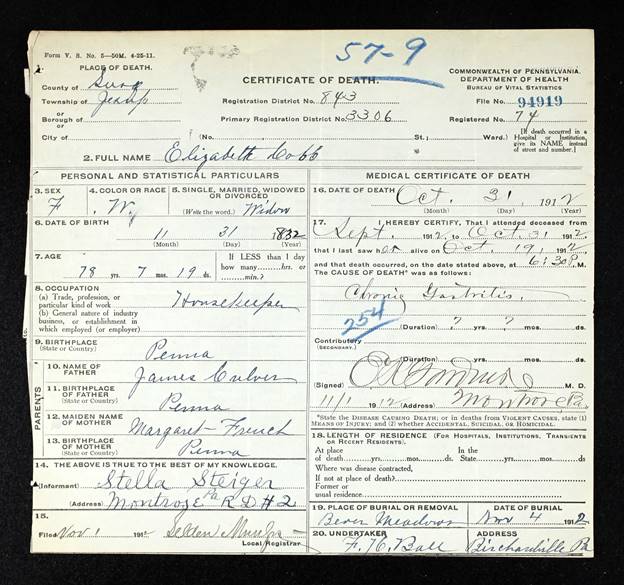 57-9
Form V. S. No. 5—50M. 4-25-11.
1. PLACE OF DEATH.
County of Susq
Township of Jessup
or
Borough of
or
City of
CERTIFICATE OF DEATH.
Registration District No. 843
Primary Registration District No. 3306
(No. St.; Ward.)
COMMONWEALTH OF PENNSYLVANIA.
DEPARTMENT OF HEALTH
BUREAU OF VITAL STATISTICS
File No. 94919
Registered No. 74
[If death occurred in a Hospital or Institution, give its NAME instead of street and number.]
2. FULL NAME Elizabeth Cobb
PERSONAL AND STATISTICAL PARTICULARS
3. SEX
F.
4. COLOR OR RACE
W.
5. SINGLE, MARRIED, WIDOWED OR DIVORCED
(Write the word.) Widow
6. DATE OF BIRTH
11 31 1832
(Month) (Day) (Year)
7. AGE
78 yrs. 7 mos. 19 ds.
If LESS than 1 day how many....hrs. or ....min.?
8. OCCUPATION
(a) Trade, profession, or particular kind of work
Housekeeper
(b) General nature of industry business, or establishment in which employed (or employer)
9. BIRTHPLACE
(State or Country)
Penna
PARENTS
10. NAME OF FATHER
James Culver
11. BIRTHPLACE OF FATHER
(State or Country)
Penna
12. MAIDEN NAME OF MOTHER
Margaret French
13. BIRTHPLACE OF MOTHER
(State or Country)
Penna
14. THE ABOVE IS TRUE TO THE BEST OF MY KNOWLEDGE.
(Informant) Stella Steiger
(Address) Montrose Pa R D #2
15.
Filed Nov 1 1912 Selden
Local Registrar
MEDICAL CERTIFICATE OF DEATH
16. DATE OF DEATH
Oct. 31, 1912
(Month) (Day) (Year)
17. I HEREBY CERTIFY, That I attended deceased from
Sept. 1912 to Oct. 31 1912
that I last saw her alive on Oct. 19, 1912
and that death occurred, on the date stated above, at 6:30P. M.
The CAUSE OF DEATH* was as follows:
Chronic Gastritis.
254
(Duration) ? yrs. ? mos. ds.
Contributory
(SECONDARY.)
(Duration) yrs. mos. ds.
(Signed) M. D.
11/1 1912 (Address) Montrose, Pa.
*State the DISEASE CAUSING DEATH; or in deaths from VIOLENT CAUSES, state (1) MEANS OF INJURY; and (2) whether ACCIDENTAL, SUICIDAL OR HOMICIDAL.
18. LENGTH OF RESIDENCE (FOR HOSPITALS, INSTITUTIONS, TRANSIENTS OR RECENT RESIDENTS).
At place of death yrs. mos. ds. In the State yrs. mos. ds.
Where was disease contracted,
If not at place of death?
Former or usual residence
19. PLACE OF BURIAL OR REMOVAL
Bever Meadows
DATE OF BURIAL
Nov 4 1912
20. UNDERTAKER
F. H. Ball
ADDRESS
Birchardville Pa